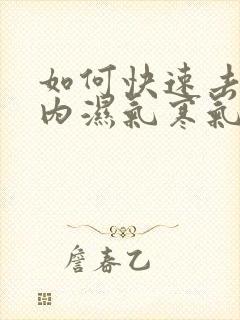 如何快速去
内濕氣寒氣
詹春乙